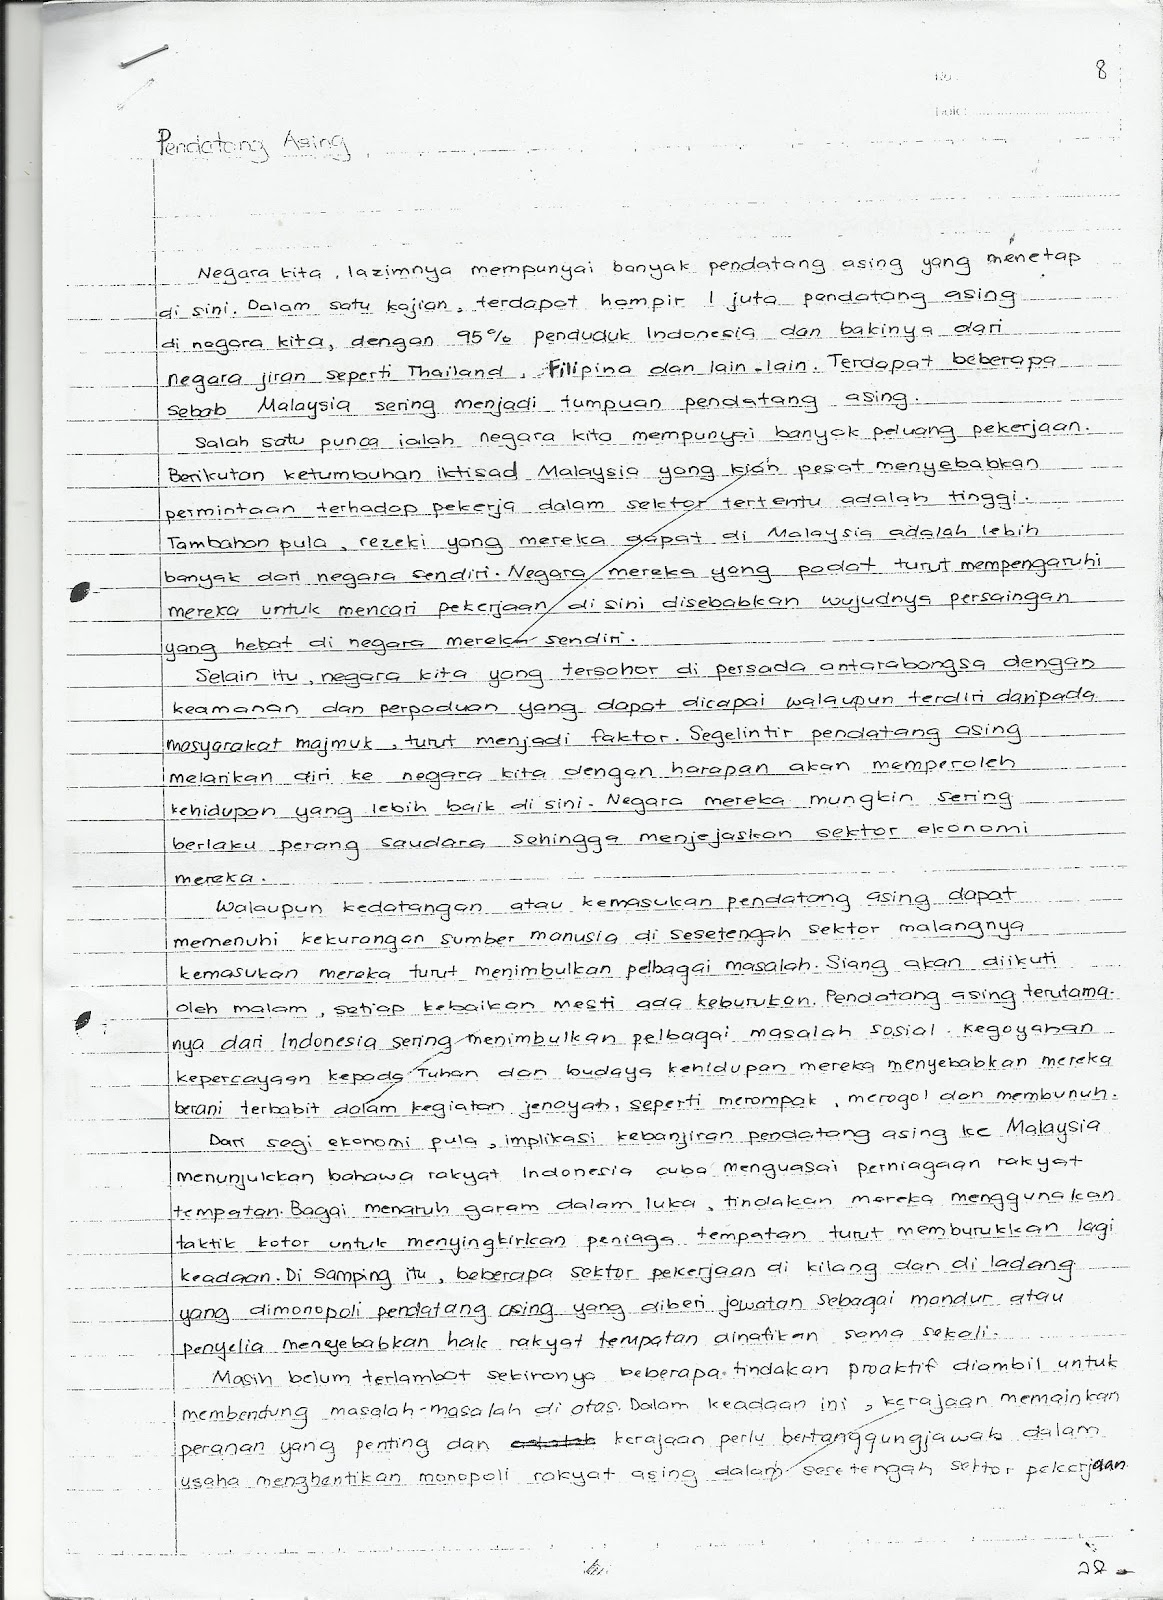 8
No :
Date :
Pendatang Asing
Negara kita, lazimnya mempunyai banyak pendatang asing yang menetap
di sini. Dalam satu kajian, terdapat hampir 1 juta pendatang asing
di negara kita, dengan 95% penduduk Indonesia dan bakinya dari
negara jiran seperti Thailand, Filipina dan lain-lain. Terdapat beberapa
sebab Malaysia sering menjadi tumpuan pendatang asing.
Salah satu punca ialah negara kita mempunyai banyak peluang pekerjaan.
Berikutan ketumbuhan iktisad Malaysia yang kian pesat menyebabkan
permintaan terhadap pekerja dalam sektor tertentu adalah tinggi.
Tambahan pula, rezeki yang mereka dapat di Malaysia adalah lebih
banyak dari negara sendiri. Negara mereka yang padat turut mempengaruhi
mereka untuk mencari pekerjaan di sini disebabkan wujudnya persaingan
yang hebat di negara mereka sendiri.
Selain itu, negara kita yang tersohor di persada antarabangsa dengan
keamanan dan perpaduan yang dapat dicapai walaupun terdiri daripada
masyarakat majmuk, turut menjadi faktor. Segelintir pendatang asing
melarikan diri ke negara kita dengan harapan akan memperoleh
kehidupan yang lebih baik di sini. Negara mereka mungkin sering
berlaku perang saudara sehingga menjejaskan sektor ekonomi
mereka.
Walaupun kedatangan atau kemasukan pendatang asing dapat
memenuhi kekurangan sumber manusia di sesetengah sektor malangnya
kemasukan mereka turut menimbulkan pelbagai masalah. Siang akan diikuti
oleh malam, setiap kebaikan mesti ada keburukan. Pendatang asing terutama-
nya dari Indonesia sering menimbulkan pelbagai masalah sosial. Kegoyahan
kepercayaan kepada Tuhan dan budaya kehidupan mereka menyebabkan mereka
berani terbabit dalam kegiatan jenayah, seperti merompak, merogol dan membunuh.
Dari segi ekonomi pula, implikasi kebanjiran pendatang asing ke Malaysia
menunjukkan bahawa rakyat Indonesia cuba menguasai perniagaan rakyat
tempatan. Bagai menaruh garam dalam luka, tindakan mereka menggunakan
taktik kotor untuk menyingkirkan peniaga tempatan turut memburukkan lagi
keadaan. Di samping itu, beberapa sektor pekerjaan di kilang dan di ladang
yang dimonopoli pendatang asing yang diberi jawatan sebagai mandur atau
penyelia menyebabkan hak rakyat tempatan dinafikan sama sekali.
Masih belum terlambat sekiranya beberapa tindakan proaktif diambil untuk
membendung masalah-masalah di atas. Dalam keadaan ini, kerajaan memainkan
peranan yang penting dan kerajaan perlu bertanggungjawab dalam
usaha menghentikan monopoli rakyat asing dalam sesetengah sektor pekerjaan
28